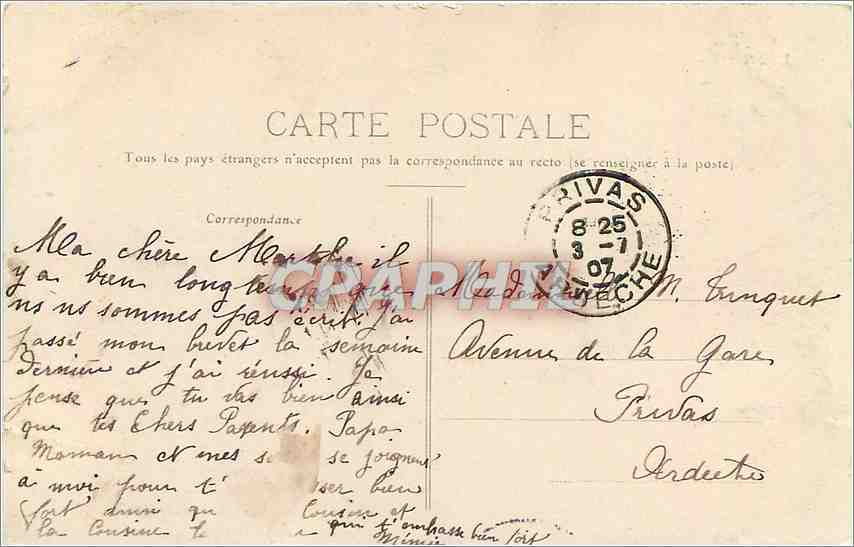 CARTE POSTALE
Tous les pays étrangers n'acceptent pas la correspondance au recto (se renseigner à la poste)
Correspondance
Ma chère Marthe il
y a bien longtemps que
ns ns sommes pas écrit. J'ai
passé mon brevet la semaine
dernière et j'ai réussi. Je
pense que tu vas bien ainsi
que tes Chers Parents. Papa
Maman et mes se joignent
à moi pour t' ser bien
fort ainsi qu Cousin et
la Cousine
qui t'embrasse bien fort
PRIVAS
8 25
3 - 7
07
ARDECHE
CRAPHIL
Mademoiselle M. Tinquet
Avenue de la Gare
Privas
Ardèche